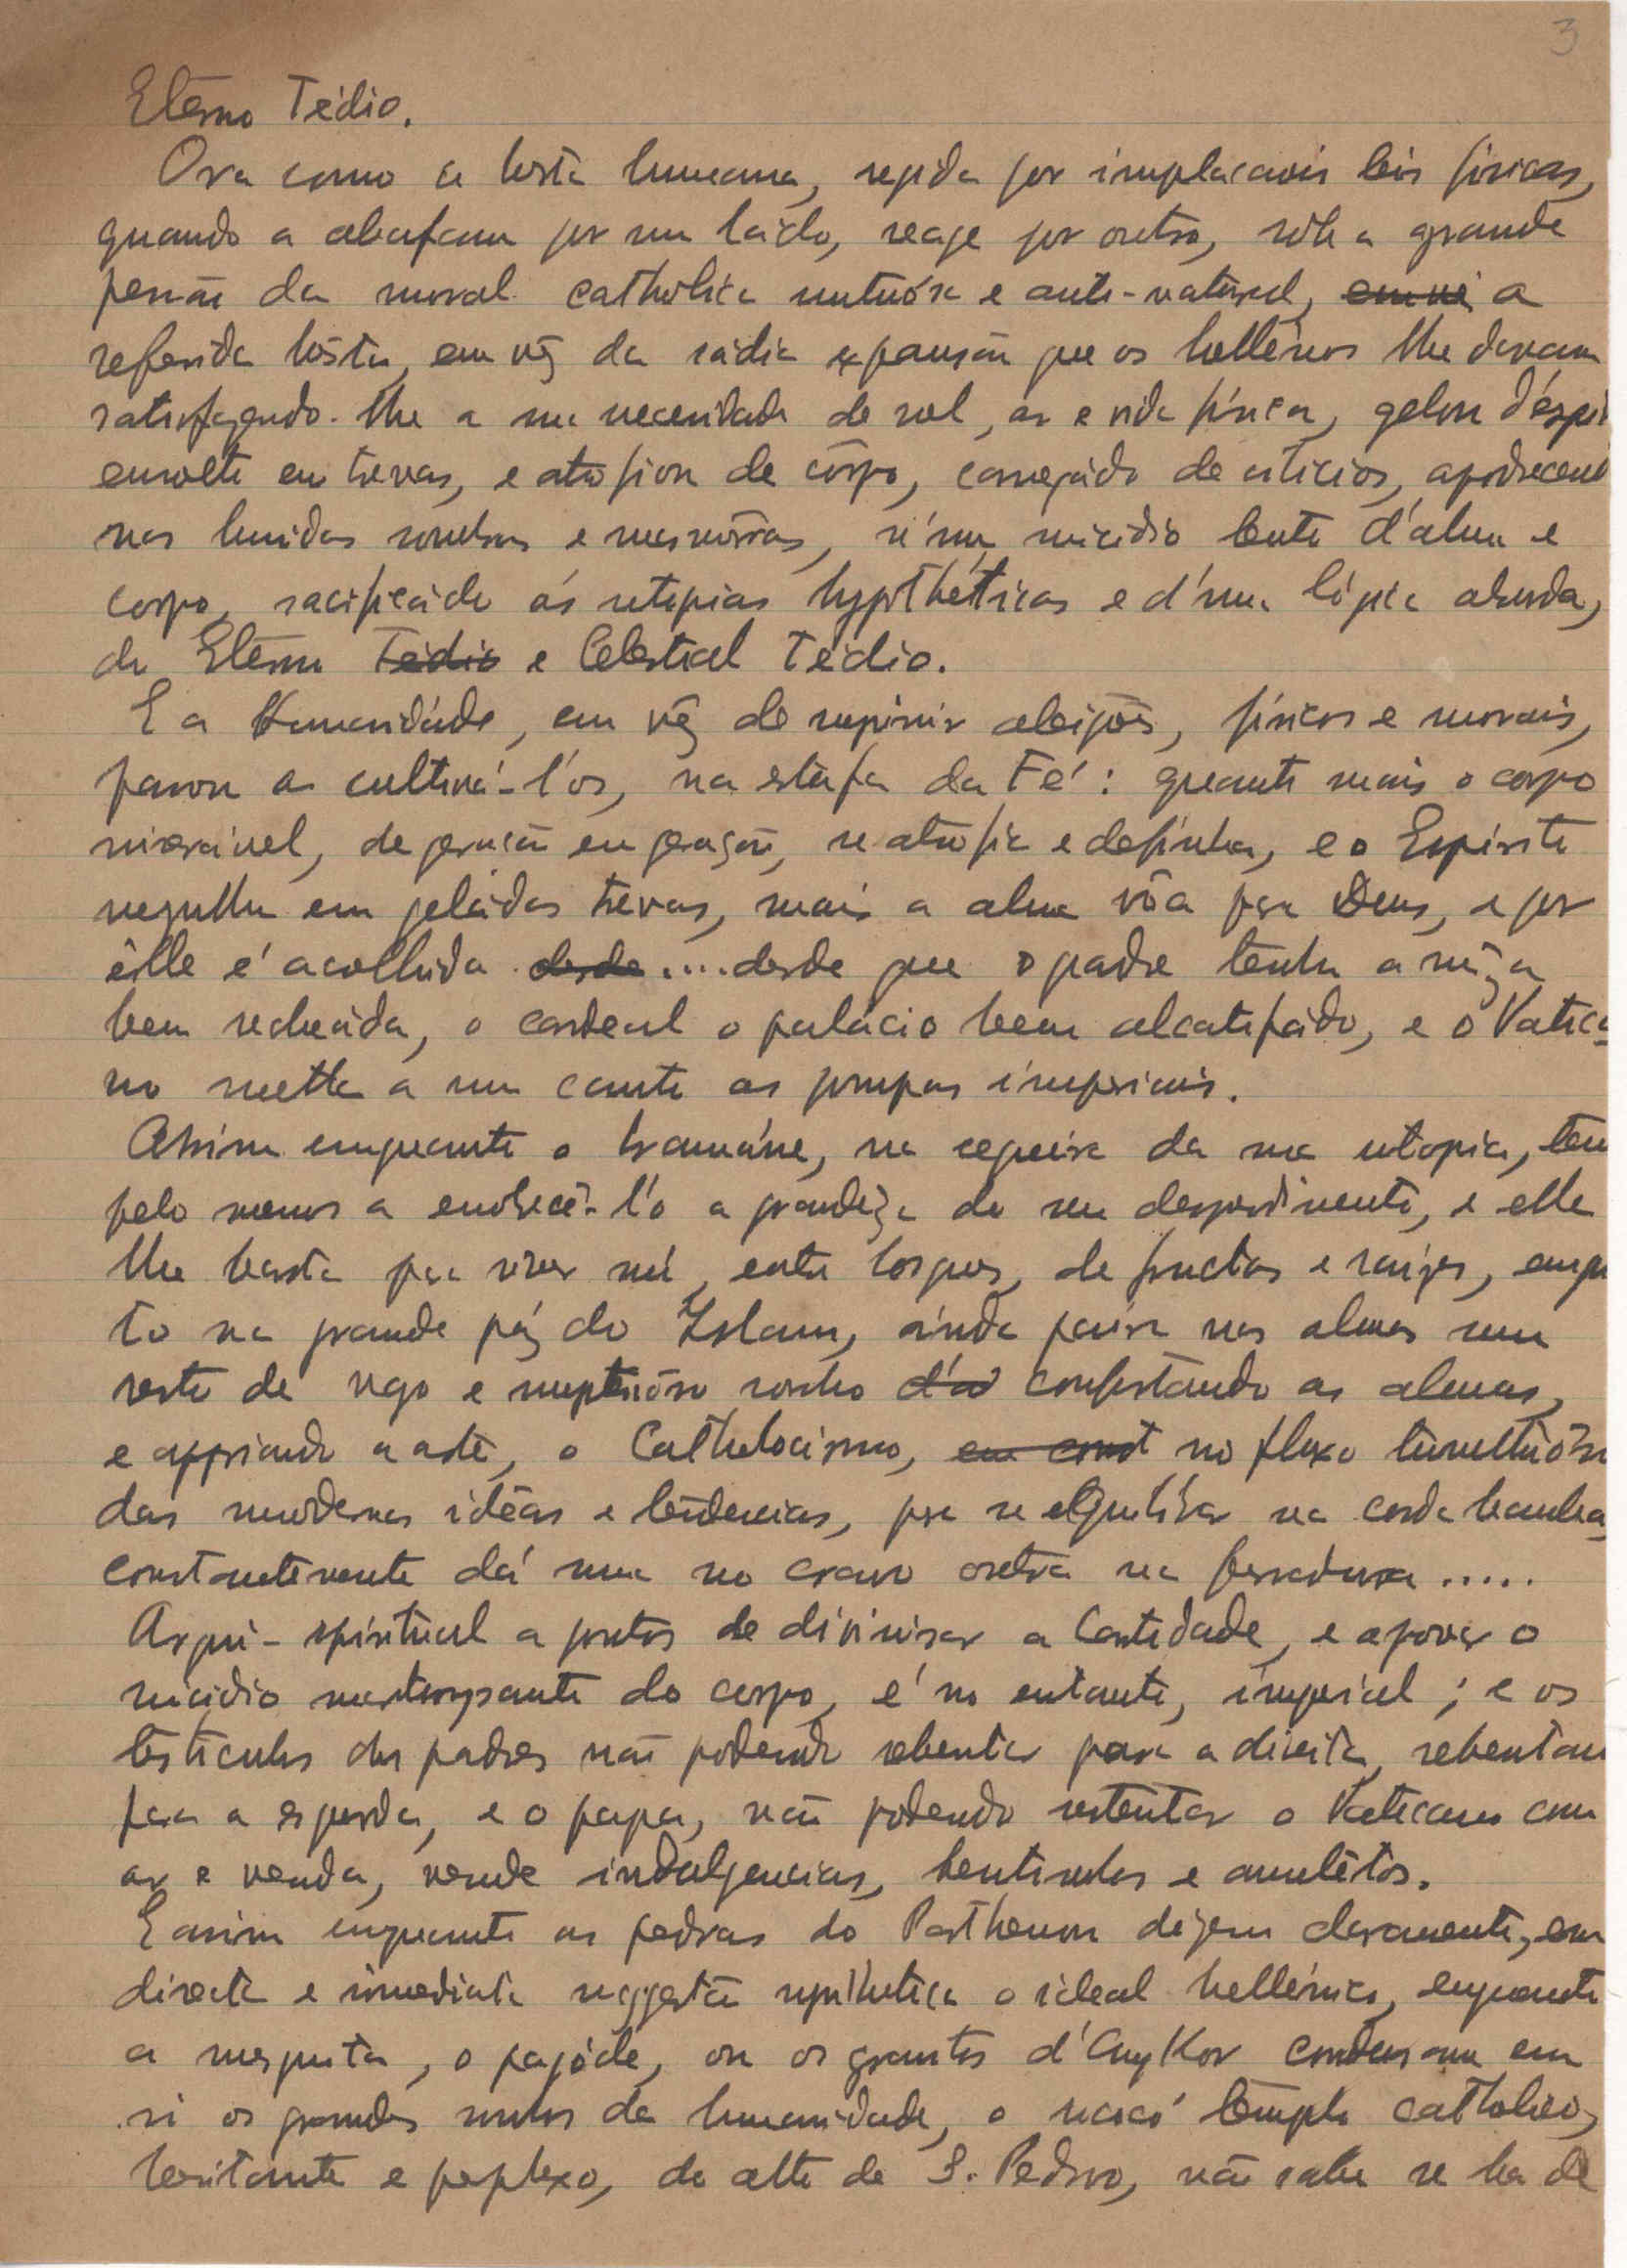 3
Eterno Tédio.
Ora como a bêsta humana, regida por implacaveis leis fisicas,
quando a abafam por um lado, reage por outro, sob a grande
pressão da moral catholica untuósa e anti-natural, a
referida bêsta, em vêz da sádia expansão que os hellénos lhe davam
satisfazendo-lhe a sua necessidade de sol, ar e vida física, gelou d'espir
envolto em trevas, e atrofiou de côrpo, carregádo de cilicios, apodrecend
nas humidas sombras e masmôrras, n'um suicidio lento d'alma e
corpo, sacrificádo ás utopias hypothéticas e d'uma lógica absurda,
do Eterno Tédio e Celestial Tédio.
E a Humanidáde, em vêz de suprimir aleijões, físicos e morais,
passou a cultivá-l'os, na estafa da Fé: quanto mais o corpo
miserável, de geração em geração, se atrofia e definha, e o Espirito
mergulha em geládas trevas, mais a alma vôa para Deus, e por
êlle é acolhida desde .... desde que o padre tenha a
bem recheáda, o cardeal o palácio bem alcatifádo, e o Vatica-
no metta a um canto as pompas imperiais.
Assim emquanto o bramáne, na cegueira da sua utopia, tem
pelo menos a enobrecê-l'o a grandeza do seu desprendimento, e elle
lhe basta para viver nú, entre bosques, de fructas e raízes, emqu
to na grande páz do Islam, ainda paira nas almas um
resto de vago e sonho confortando as almas,
e a arte, o Catholocismo, em const no fluxo tumultuôso
das modernas idéas e tendencias, para se equilibrar na corda bamba,
constantemente dá uma no cravo outra na ferradura .....
Arqui-spiritual a pontos de divinisar a Castidade, e aprovar o
suicidio do corpo, é no entanto, imperial; e os
testiculos dos padres não podendo rebentar para a direita, rebentam
para a esquerda, e o papa, não podendo sustentar o Vaticano com
ar e venda, vende indulgencias, bentinhos e amulêtos.
E assim emquanto as pedras do Parthenon dizem claramente, em
directa e immediata suggestão synthetica o ideal hellénico, emquanto
a mesquita, o pagóde, ou os granitos d'AngKor condensam em
si os grandes sonhos da humanidade, o templo catholico,
hesitante e perplexo, do alto de S. Pedro, não sabe se ha de